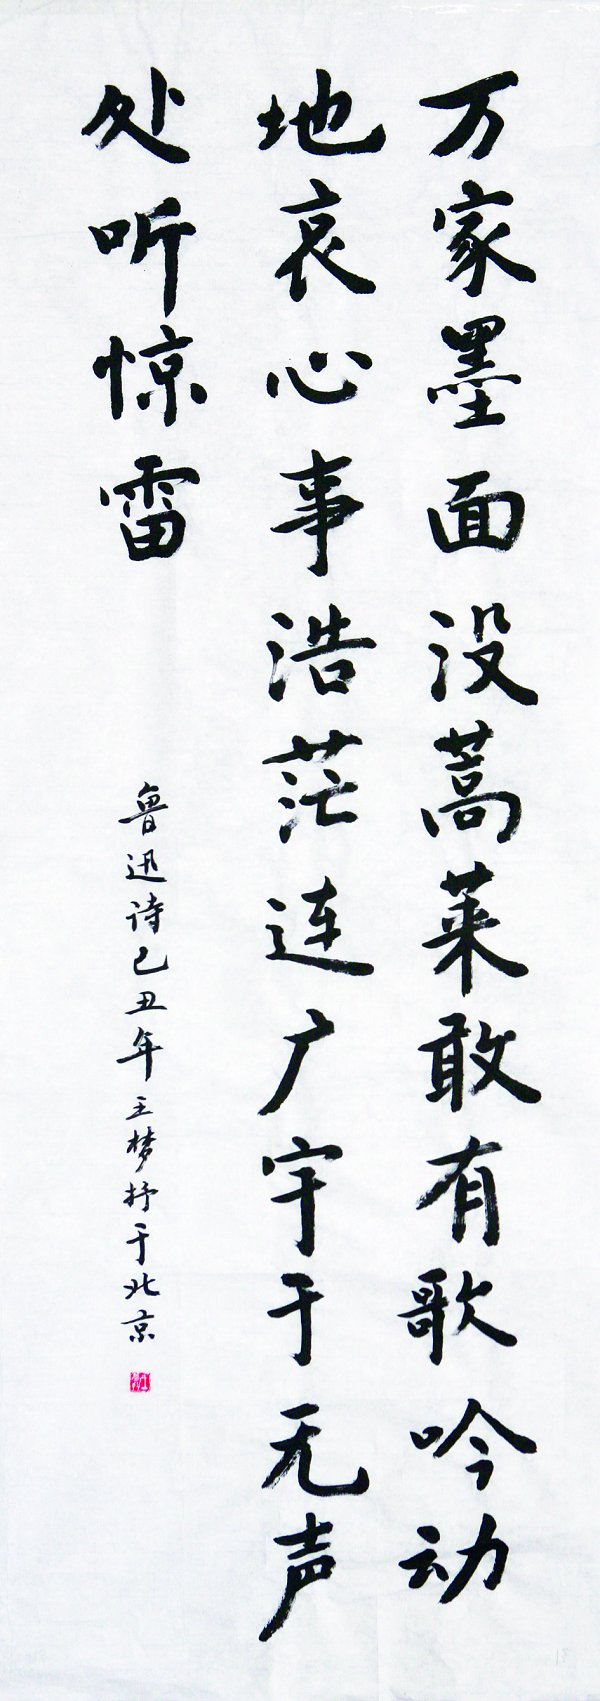 万家墨面没蒿莱敢有歌吟动
地哀心事浩茫连广宇于无声
处听惊雷
鲁迅诗己丑年王梦抒于北京